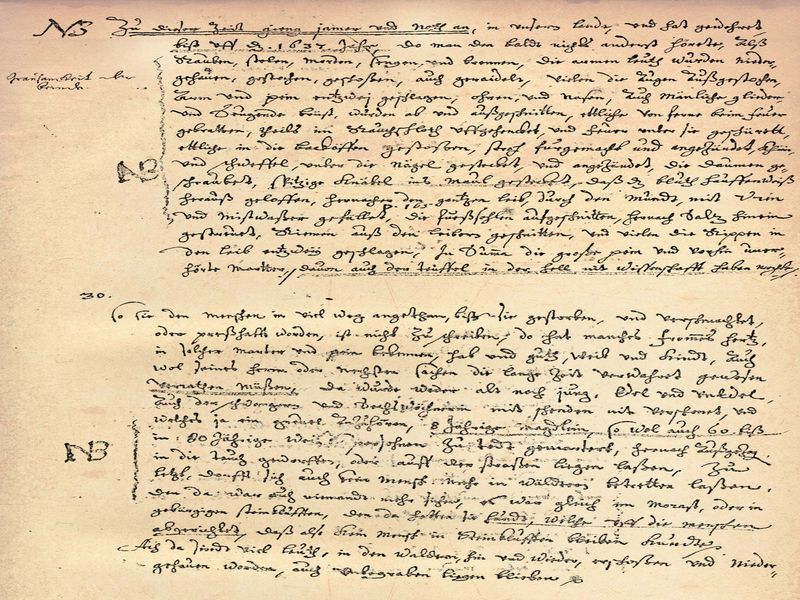 NB Zu dieser Zeit gieng jamer und Noth an, in unserm lande, und hat gewehret
biß uff d. 1637 Jahr, do man den baldt nichts anderst hörete, Alß
Rauben, stelen, morden, sengen und brennen, die armen leuth wurden nieder-
gehauen, gestochen, gestoßen, auch geraidelt, vielen die Augen außgestochen,
Arm und pein entzwej geschlagen, ohren, und Nasen, Auch Mänliche glieder
und Seugende brüst, wurden ab und außgeschnitten, ettliche von ferne beim feuer
gebratten, theils im Rauchschloth uffgehencket, und feuer under sie geschürett,
ettliche in die backöffen gestossen, stroh fürgemacht und angezündet, Khin
und schweffel under die Nägel gesteckt, und angezündet, die daumen ge-
schraubet, spitzige Knübel ins Maul gesteckt, daß d. bluth hauffenweiß
herauß geloffen, hernacher den gantzen leib, durch den Mundt, mit Urin
und Mistwasser gefüllet, die fueßsohlen auffgeschnitten, hernach Saltz hinein
gestreuet, Riemen auß den leibern geschnitten, und vielen die Rippen in
den leib entzwej geschlagen, In Summa die große pein und vorhin uner-
hörte marter, davon auch der teuffel in der hell nit wissenschafft haben möcht,
NB
30.
So sie den menschen in viel weg angethan, biß sie gestorben, und verschmachtet,
oder presthafft worden, ist nicht zu schreiben, do hat manches frommes hertz,
in solcher marter und pein bekennen, hab und guth, weib und kindt, Auch
wol seines herrn der nechsten sachen die lange zeit verwahret gewesen
verrathen müßen, da wurde weder alt noch jung, Edel und unedel,
Auch der schwangern und Sechswöchnerin mit schenden nit verschonet, und
welches ja ein greuel zuhören, 8 Jährige mägdlein so wol auch 60 biß
in 80 Jährige weibs persohnen zu todt gemartert, hernach außgezogen
in die teuch geworffen, oder auff der straßen liegen laßen, Zu
letzt, dorfft sich auch kein mensch mehr in wäldern betretten laßen,
den da war auch niemandt mehr sicher, es war gleich im morast, oder in
gebürgigen steinklufften, den da hatten sie hundt, welche uff die menschen
abgerichtet, daß also kein mensch in steinklufften bleiben kundte.
Ach da sindt viel leuth, in den wäldern, hin und wieder, erschoßen und nieder-
gehauen worden, auch unbegraben liegen blieben
NB